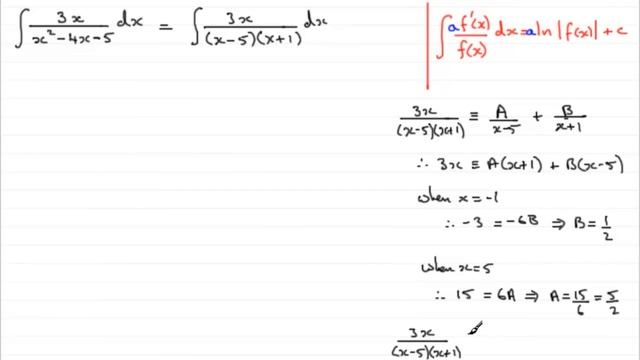 ∫ 3x/(x²-4x-5) dx = ∫ 3x/((x-5)(x+1)) dx
∫ af'(x)/f(x) dx = a ln |f(x)| + c
3x/((x-5)(x+1)) ≡ A/(x-5) + B/(x+1)
∴ 3x ≡ A(x+1) + B(x-5)
when x=-1
∴ -3 = -6B ⇒ B = 1/2
when x=5
∴ 15 = 6A ⇒ A = 15/6 = 5/2
3x/((x-5)(x+1))